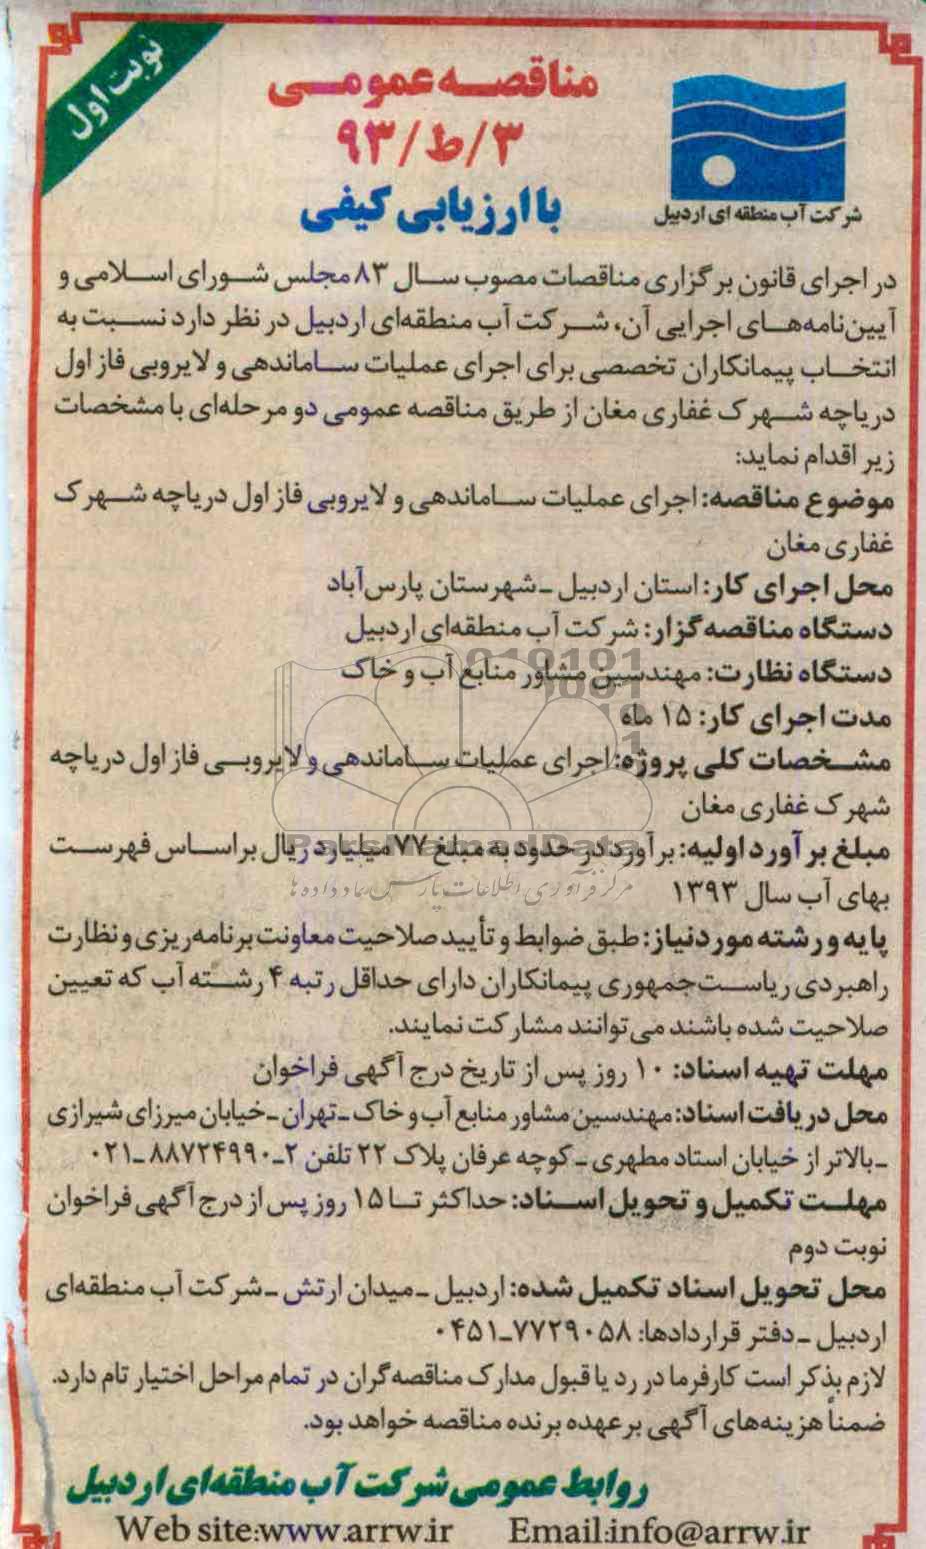 نوبت اول
مناقصه عمومی
۳/ط/۹۳
با ارزیابی کیفی
شرکت آب منطقه ای اردبیل
در اجرای قانون برگزاری مناقصات مصوب سال ۸۳ مجلس شورای اسلامی و
آیین‌نامه‌های اجرایی آن، شرکت آب منطقه‌ای اردبیل در نظر دارد نسبت به
انتخاب پیمانکاران تخصصی برای اجرای عملیات ساماندهی و لایروبی فاز اول
دریاچه شهرک غفاری مغان از طریق مناقصه عمومی دو مرحله‌ای با مشخصات
زیر اقدام نماید:
موضوع مناقصه: اجرای عملیات ساماندهی و لایروبی فاز اول دریاچه شهرک
غفاری مغان
محل اجرای کار: استان اردبیل ـ شهرستان پارس‌آباد
دستگاه مناقصه‌گزار: شرکت آب منطقه‌ای اردبیل
دستگاه نظارت: مهندسین مشاور منابع آب و خاک
مدت اجرای کار: ۱۵ ماه
مشخصات کلی پروژه: اجرای عملیات ساماندهی و لایروبی فاز اول دریاچه
شهرک غفاری مغان
مبلغ برآورد اولیه: برآورد در حدود به مبلغ ۷۷ میلیارد ریال براساس فهرست
بهای آب سال ۱۳۹۳
پایه و رشته موردنیاز: طبق ضوابط و تأیید صلاحیت معاونت برنامه‌ریزی و نظارت
راهبردی ریاست‌جمهوری پیمانکاران دارای حداقل رتبه ۴ رشته آب که تعیین
صلاحیت شده باشند می‌توانند مشارکت نمایند.
مهلت تهیه اسناد: ۱۰ روز پس از تاریخ درج آگهی فراخوان
محل دریافت اسناد: مهندسین مشاور منابع آب و خاک ـ تهران ـ خیابان میرزای شیرازی
ـ بالاتر از خیابان استاد مطهری ـ کوچه عرفان پلاک ۲۲ تلفن ۲ـ۸۸۷۲۴۹۹۰ـ۰۲۱
مهلت تکمیل و تحویل اسناد: حداکثر تا ۱۵ روز پس از درج آگهی فراخوان
نوبت دوم
محل تحویل اسناد تکمیل شده: اردبیل ـ میدان ارتش ـ شرکت آب منطقه‌ای
اردبیل ـ دفتر قراردادها: ۷۷۲۹۰۵۸ـ۰۴۵۱
لازم بذکر است کارفرما در رد یا قبول مدارک مناقصه‌گران در تمام مراحل اختیار تام دارد.
ضمناً هزینه‌های آگهی برعهده برنده مناقصه خواهد بود.
روابط عمومی شرکت آب منطقه‌ای اردبیل
Web site:www.arrw.ir Email:info@arrw.ir
ParsNamadData
مرکز فرآوری اطلاعات پارس نماد داده ها